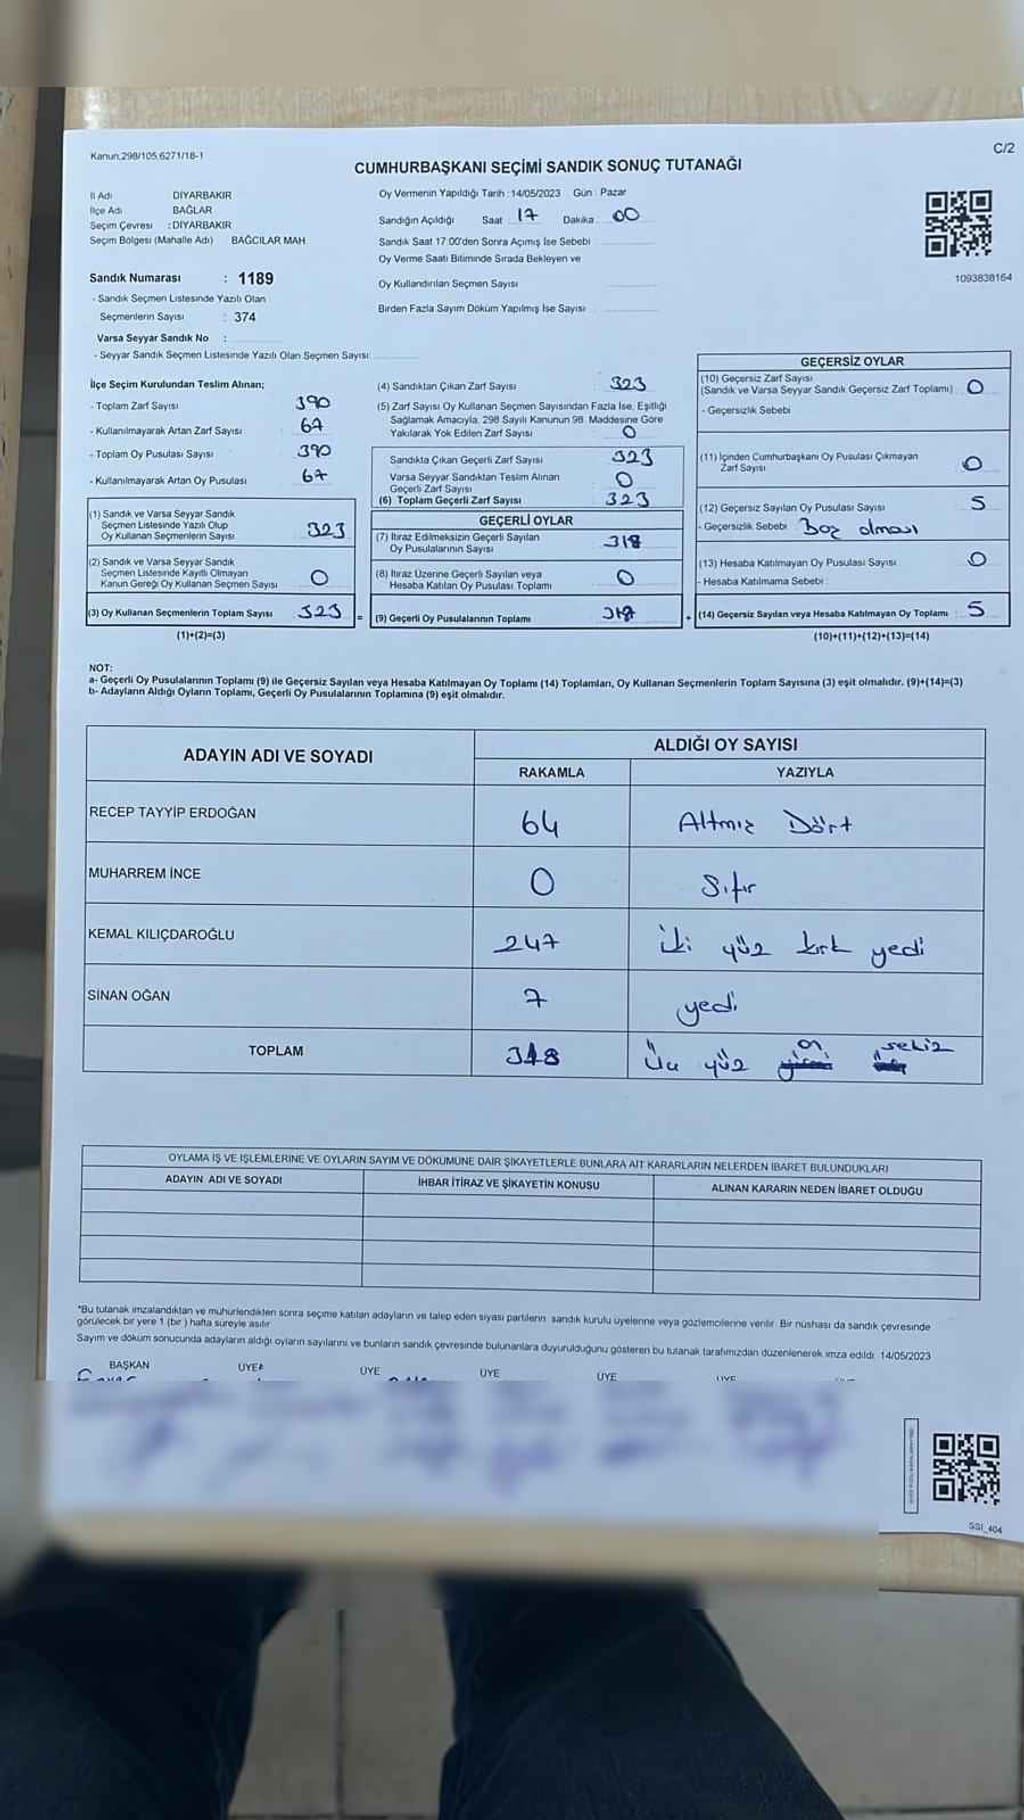 Kanun:298/105,6271/18-1
C/2
CUMHURBAŞKANI SEÇİMİ SANDIK SONUÇ TUTANAĞI
İl Adı DİYARBAKIR
İlçe Adı BAĞLAR
Seçim Çevresi : DİYARBAKIR
Seçim Bölgesi (Mahalle Adı) BAĞCILAR MAH.
Oy Vermenin Yapıldığı Tarih : 14/05/2023 Gün : Pazar
Sandığın Açıldığı Saat 17 Dakika 00
Sandık Saat 17:00'den Sonra Açımış İse Sebebi
Oy Verme Saati Bitiminde Sırada Bekleyen ve
Oy Kullandırılan Seçmen Sayısı
Birden Fazla Sayım Döküm Yapılmış İse Sayısı
1093838164
Sandık Numarası : 1189
- Sandık Seçmen Listesinde Yazılı Olan
Seçmenlerin Sayısı : 374
Varsa Seyyar Sandık No :
- Seyyar Sandık Seçmen Listesinde Yazılı Olan Seçmen Sayısı:
İlçe Seçim Kurulundan Teslim Alınan;
- Toplam Zarf Sayısı 390
- Kullanılmayarak Artan Zarf Sayısı 67
- Toplam Oy Pusulası Sayısı 390
- Kullanılmayarak Artan Oy Pusulası 67
(1) Sandık ve Varsa Seyyar Sandık
Seçmen Listesinde Yazılı Olup
Oy Kullanan Seçmenlerin Sayısı 323
(2) Sandık ve Varsa Seyyar Sandık
Seçmen Listesinde Kayıtlı Olmayan
Kanun Gereği Oy Kullanan Seçmen Sayısı 0
(3) Oy Kullanan Seçmenlerin Toplam Sayısı 323 =
(1)+(2)=(3)
(4) Sandıktan Çıkan Zarf Sayısı 323
(5) Zarf Sayısı Oy Kullanan Seçmen Sayısından Fazla İse, Eşitliği
Sağlamak Amacıyla, 298 Sayılı Kanunun 98. Maddesine Göre
Yakılarak Yok Edilen Zarf Sayısı 0
Sandıkta Çıkan Geçerli Zarf Sayısı 323
Varsa Seyyar Sandıktan Teslim Alınan
Geçerli Zarf Sayısı 0
(6) Toplam Geçerli Zarf Sayısı 323
GEÇERLİ OYLAR
(7) İtiraz Edilmeksizin Geçerli Sayılan
Oy Pusulalarının Sayısı 318
(8) İtiraz Üzerine Geçerli Sayılan veya
Hesaba Katılan Oy Pusulası Toplamı 0
(9) Geçerli Oy Pusulalarının Toplamı 318 +
GEÇERSİZ OYLAR
(10) Geçersiz Zarf Sayısı
(Sandık ve Varsa Seyyar Sandık Geçersiz Zarf Toplamı) 0
- Geçersizlik Sebebi
(11) İçinden Cumhurbaşkanı Oy Pusulası Çıkmayan
Zarf Sayısı 0
(12) Geçersiz Sayılan Oy Pusulası Sayısı 5
- Geçersizlik Sebebi Boz olması
(13) Hesaba Katılmayan Oy Pusulası Sayısı 0
- Hesaba Katılmama Sebebi :
(14) Geçersiz Sayılan veya Hesaba Katılmayan Oy Toplamı : 5
(10)+(11)+(12)+(13)=(14)
NOT:
a- Geçerli Oy Pusulalarının Toplamı (9) ile Geçersiz Sayılan veya Hesaba Katılmayan Oy Toplamı (14) Toplamları, Oy Kullanan Seçmenlerin Toplam Sayısına (3) eşit olmalıdır. (9)+(14)=(3)
b- Adayların Aldığı Oyların Toplamı, Geçerli Oy Pusulalarının Toplamına (9) eşit olmalıdır.
ADAYIN ADI VE SOYADI
ALDIĞI OY SAYISI
RAKAMLA YAZIYLA
RECEP TAYYİP ERDOĞAN 64 Altmız Dört
MUHARREM İNCE 0 Sıfır
KEMAL KILIÇDAROĞLU 247 iki yüz kırk yedi
SİNAN OĞAN 7 yedi
TOPLAM 318 Üc yüz on sekiz
OYLAMA İŞ VE İŞLEMLERİNE VE OYLARIN SAYIM VE DÖKÜMÜNE DAİR ŞİKAYETLERLE BUNLARA AİT KARARLARIN NELERDEN İBARET BULUNDUKLARI
ADAYIN ADI VE SOYADI İHBAR İTİRAZ VE ŞİKAYETİN KONUSU ALINAN KARARIN NEDEN İBARET OLDUĞU
*Bu tutanak imzalandıktan ve mühürlendikten sonra seçime katılan adayların ve talep eden siyasi partilerin sandık kurulu üyelerine veya gözlemcilerine verilir. Bir nüshası da sandık çevresinde
görülecek bir yere 1 (bir) hafta süreyle asılır.
Sayım ve döküm sonucunda adayların aldığı oyların sayılarını ve bunların sandık çevresinde bulunanlara duyurulduğunu gösteren bu tutanak tarafımızdan düzenlenerek imza edildi. 14/05/2023
BAŞKAN ÜYE ÜYE ÜYE ÜYE ÜYE
SSI_404